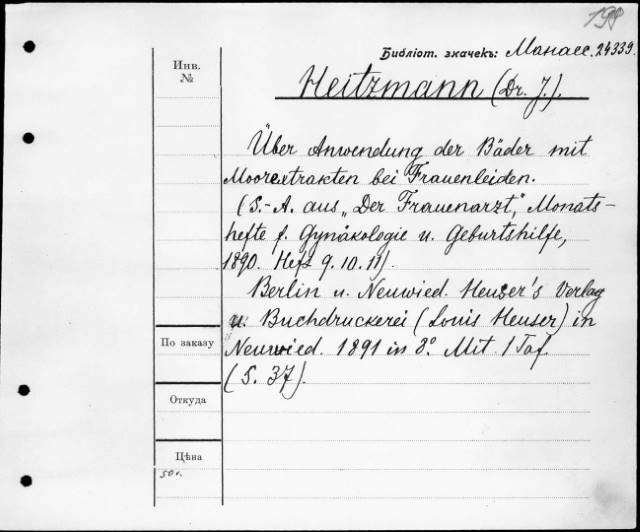 198
Библіот. значекъ: Манасс. 24339.
Инв.
№
Heitzmann (Dr. J.).
Über Anwendung der Bäder mit
Moorextrakten bei Frauenleiden.
(S.-A. aus „Der Frauenarzt," Monats-
hefte f. Gynäkologie u. Geburtshilfe,
1890. Heft 9. 10. 11).
Berlin u. Neuwied. Heuser's Verlag
u. Buchdruckerei (Louis Heuser) in
По заказу
Neuwied. 1891 in 8°. Mit 1 Taf.
(S. 37).
Откуда
Цѣна
50 к.